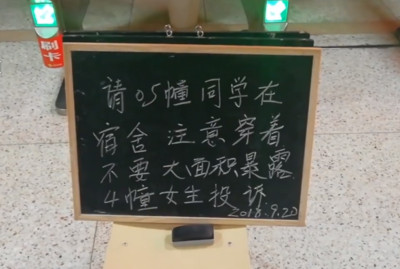 刷卡
请05幢同学在
宿舍 注意穿着
不要大面积暴露
4幢女生投诉
2018.9.20